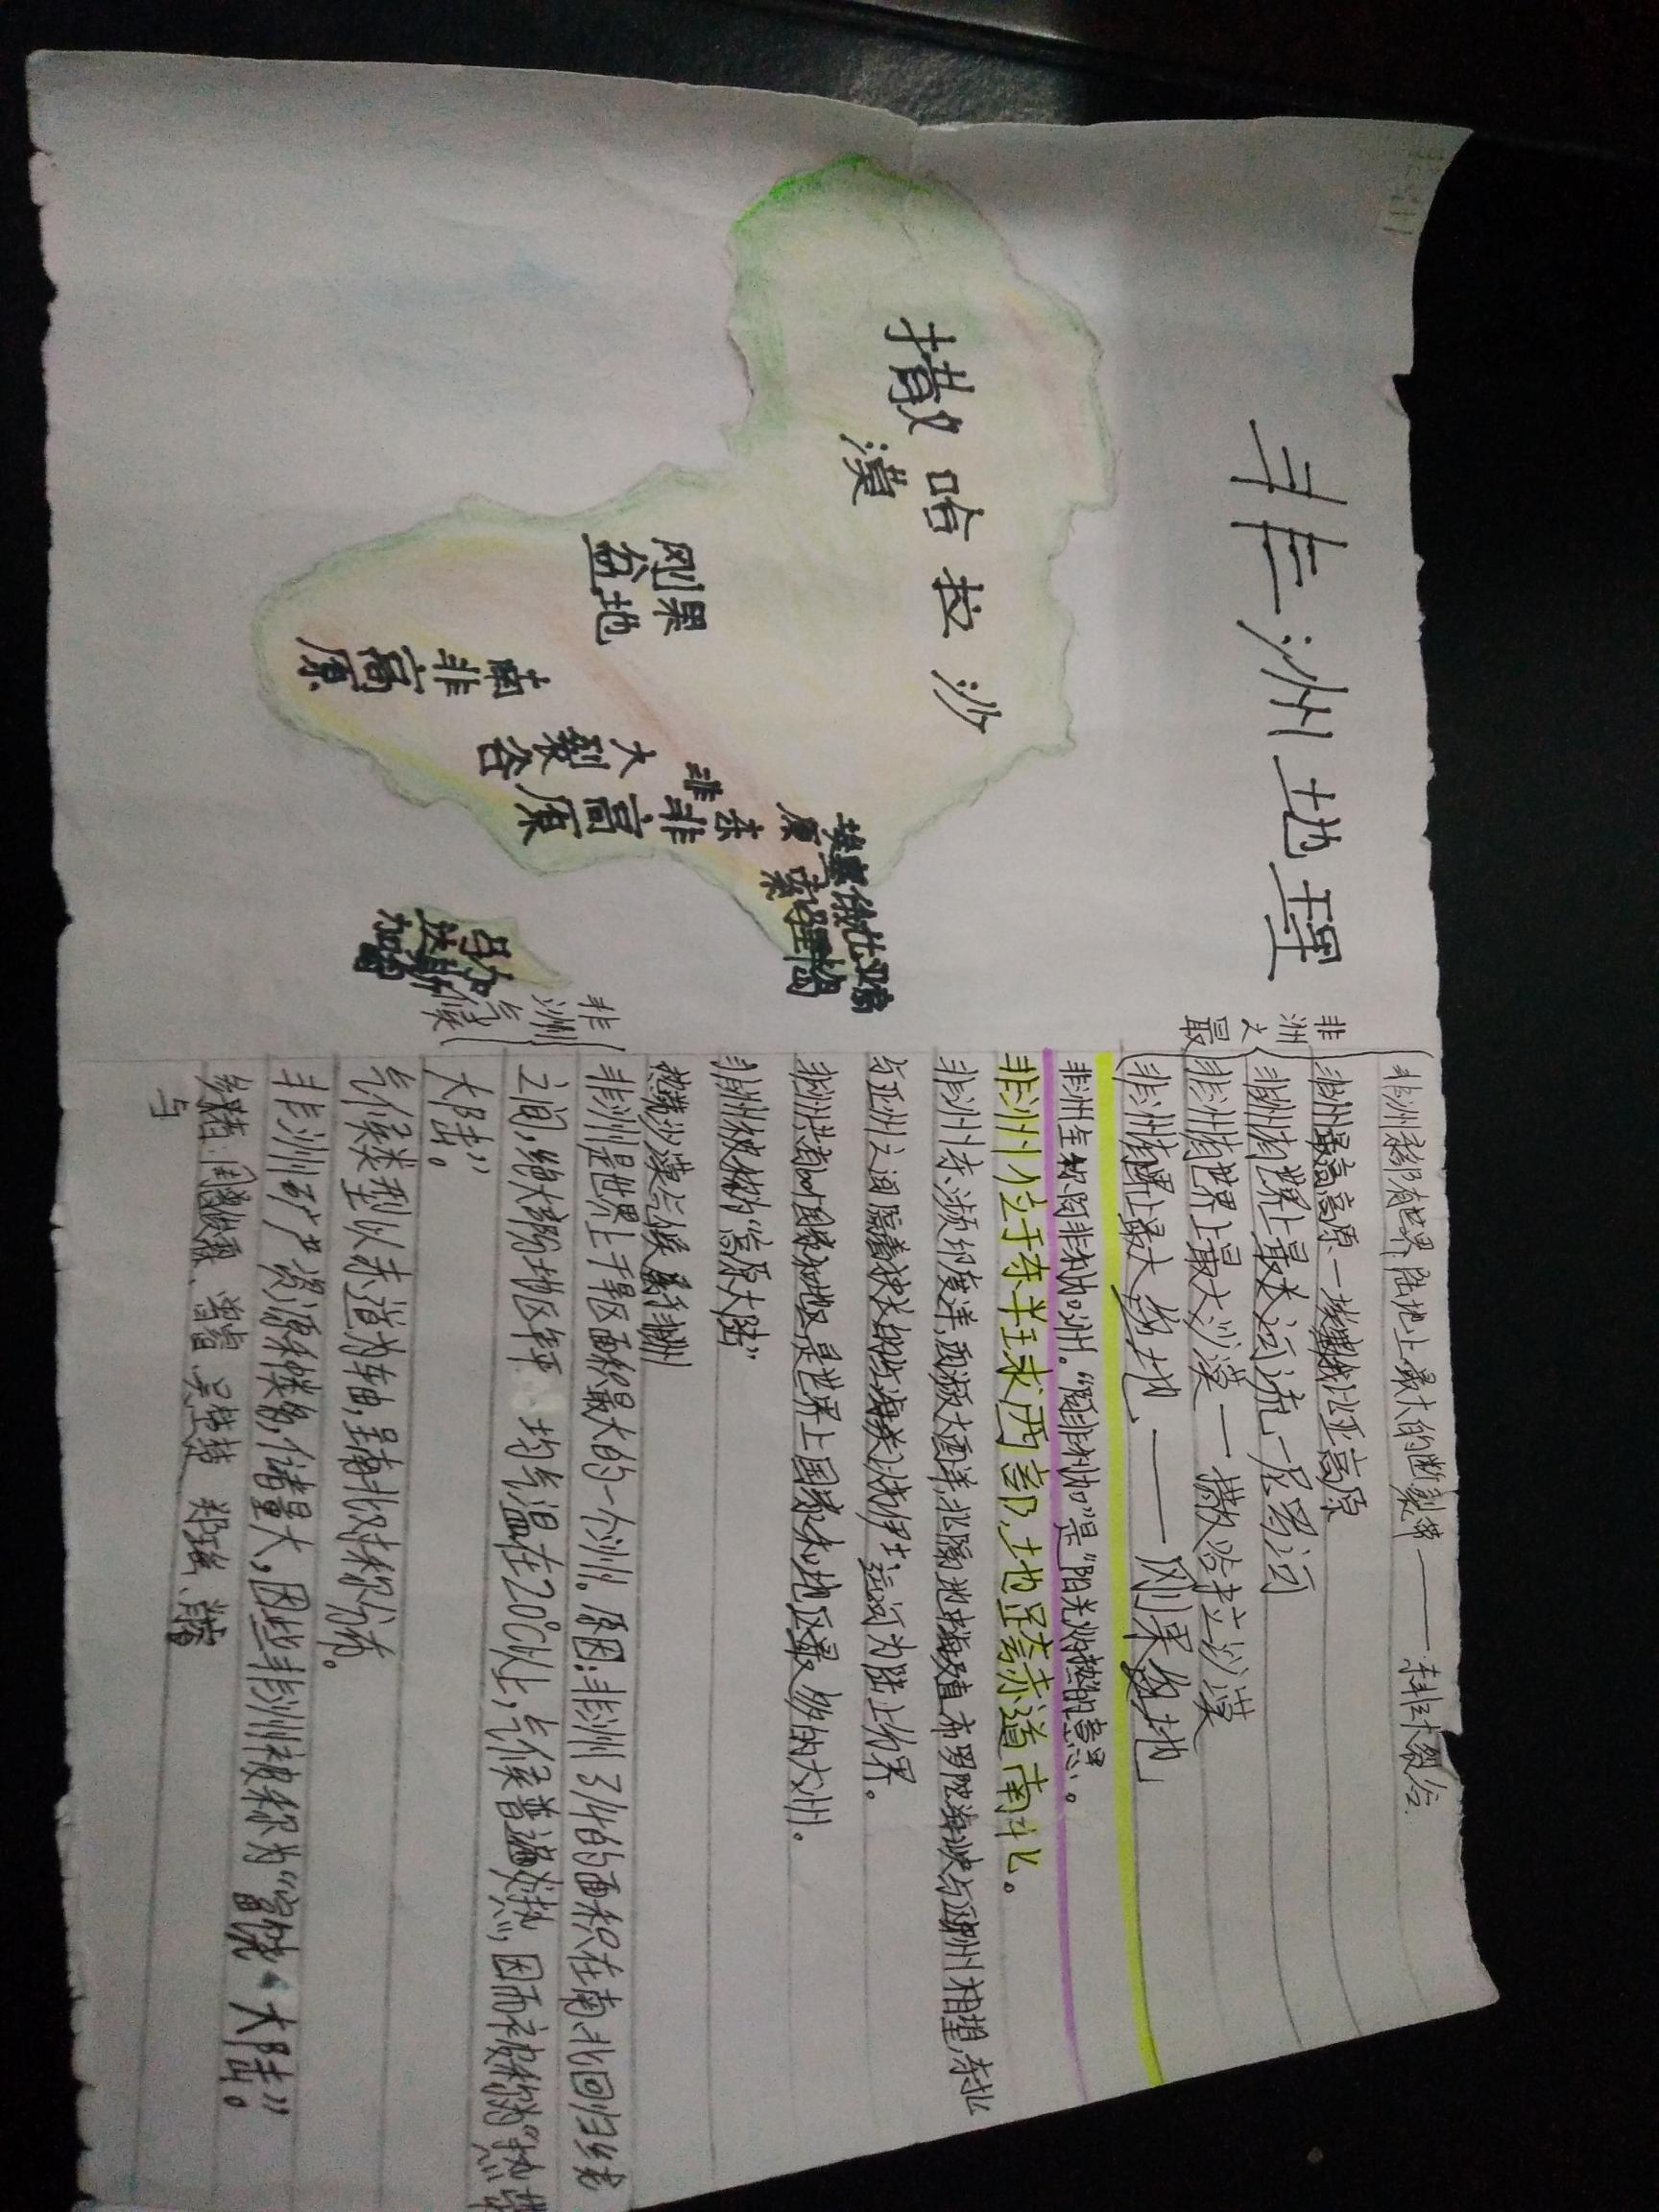 非洲地理
撒哈拉沙
漠
刚果
盆地
南非高原
东非
大裂谷
东非高原
埃塞俄比亚高
原
索马里半岛
马达加斯加
非洲之最
非洲东部有世界陆地上最大的断裂带——东非大裂谷
非洲最高高原—埃塞俄比亚高原
非洲有世界上最长河流—尼罗河
非洲有世界上最大沙漠—撒哈拉沙漠
非洲有世界上最大盆地——刚果盆地
非洲全称阿非利加洲。“阿非利加”是“阳光灼热”的意思。
非洲位于东半球西部,地跨赤道南北。
非洲东濒印度洋,西濒大西洋,北隔地中海及直布罗陀海峡与欧洲相望,东北
与亚洲之间隔着狭长的红海,苏伊士运河为陆上分界。
非洲共有60个国家和地区,是世界上国家和地区最多的大洲。
非洲被称为“高原大陆”
非洲气候
热带沙漠气候
非洲是世界上干旱区面积最大的一个洲。原因:非洲3/4的面积在南北回归线
之间,绝大部分地区年平均气温在20℃以上,气候普遍炎热,因而被称为“热带
大陆”。
气候类型以赤道为轴,呈南北对称分布。
非洲矿产资源种类多,储量大,因此非洲被称为“富饶大陆”。
参考